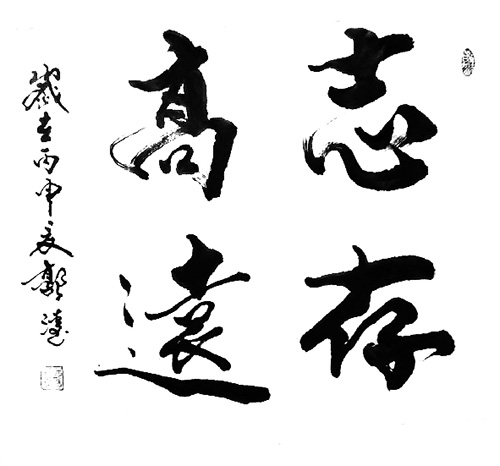 志存
高遠
歲在丙申夏郭